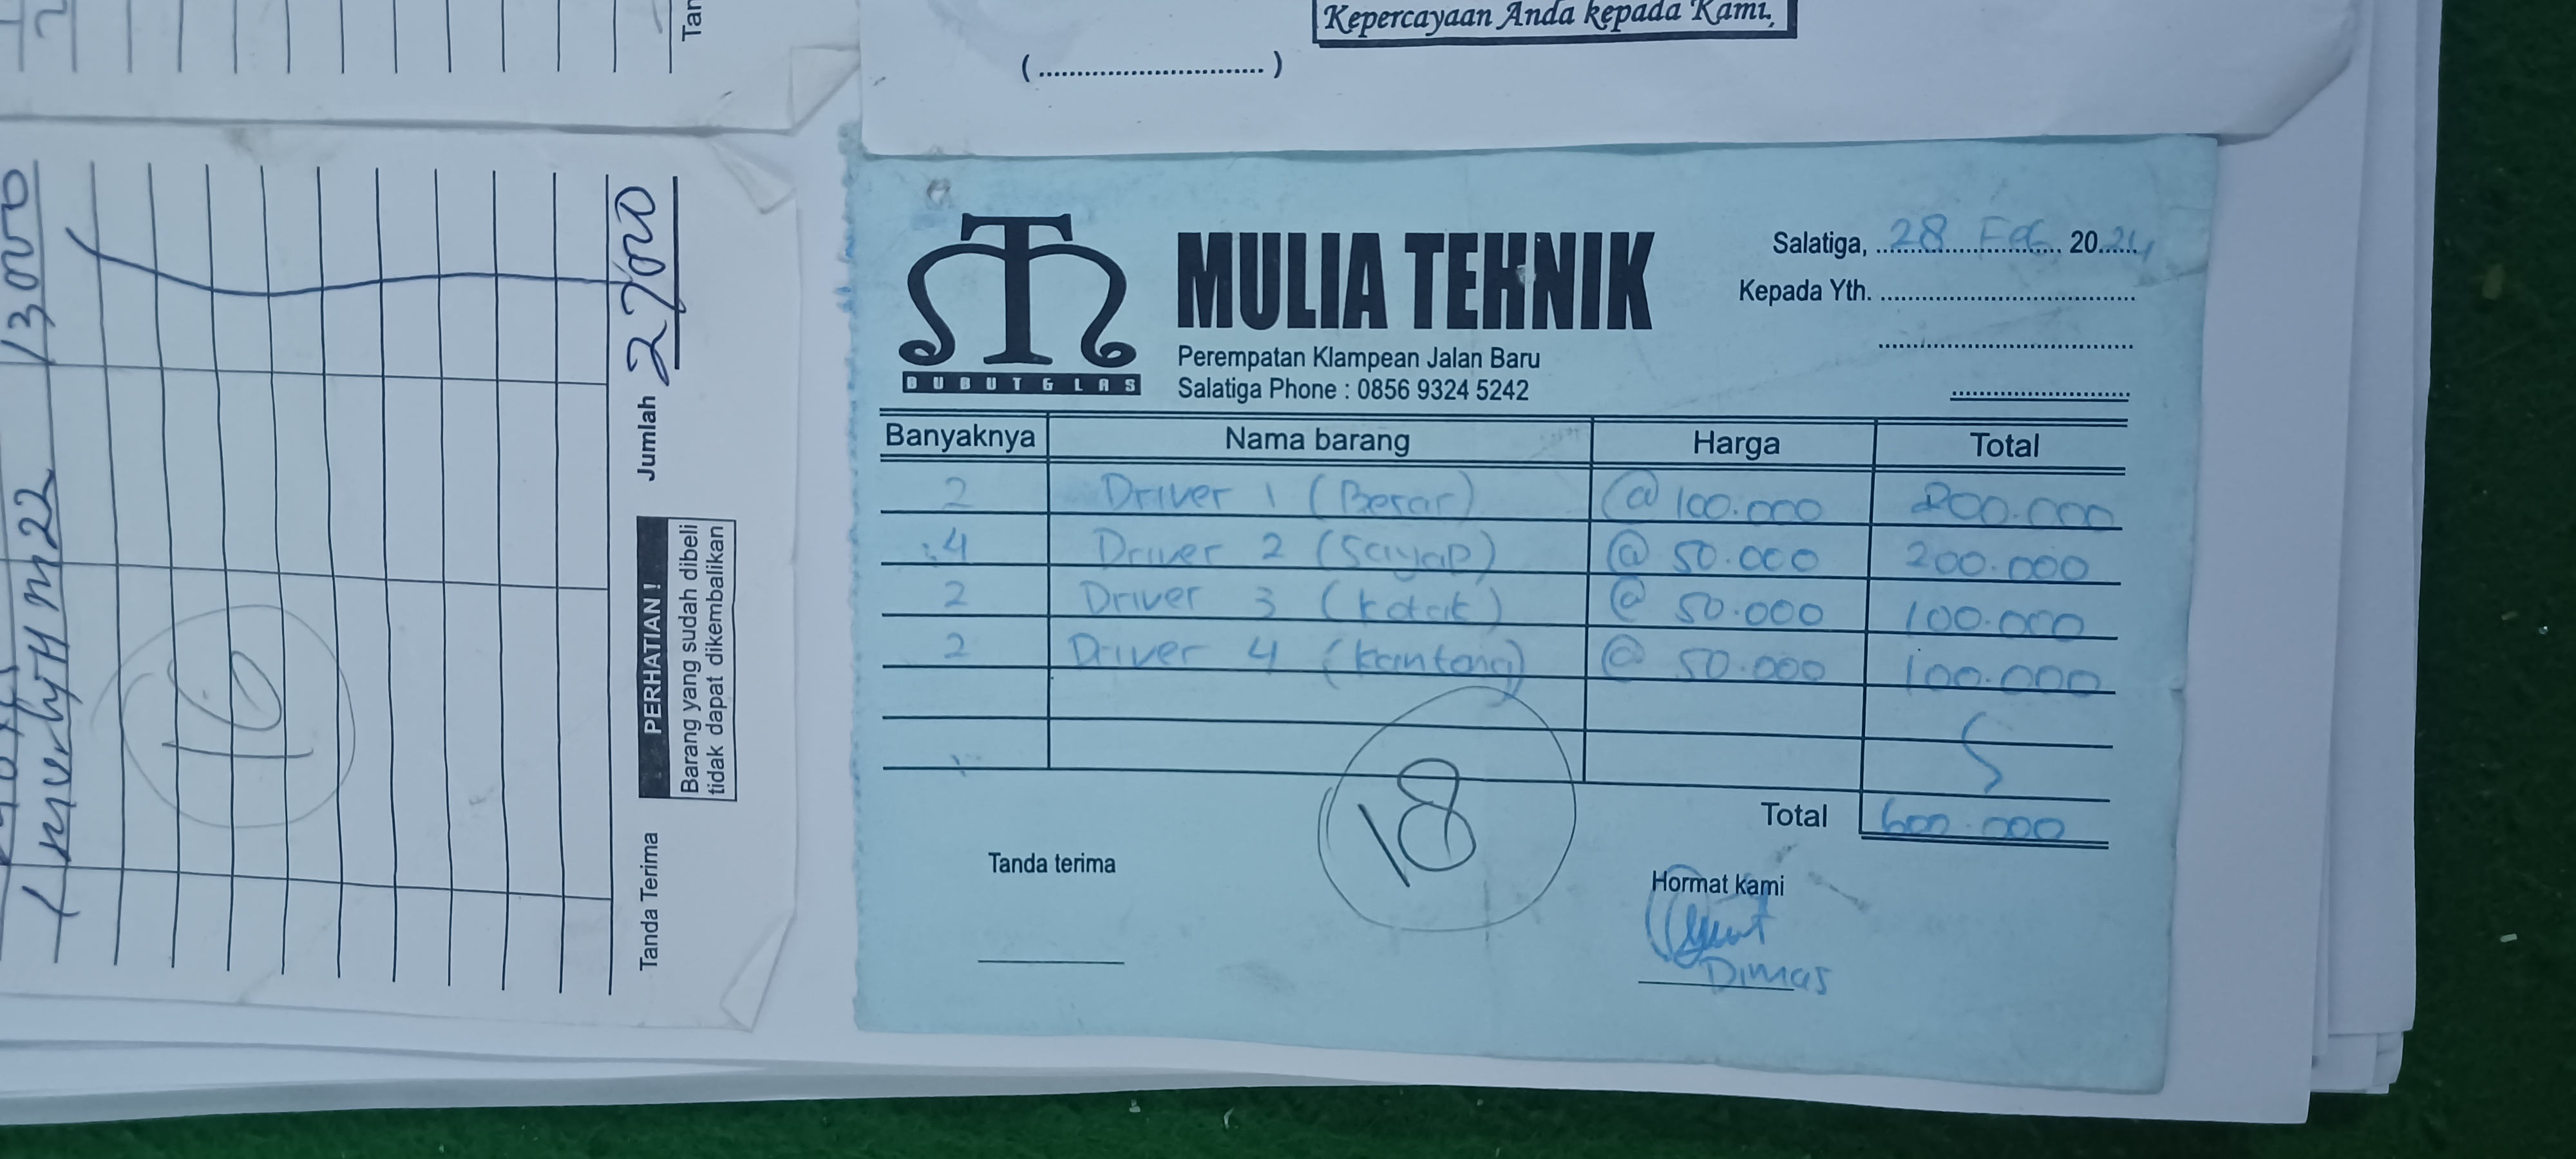 MULIA TEHNIK
BUBUTGLAS
Perempatan Klampean Jalan Baru
Salatiga Phone : 0856 9324 5242
Salatiga, 28 Feb 2024
Kepada Yth.
Banyaknya Nama barang Harga Total
2 Driver 1 (Besar) @ 100.000 200.000
4 Driver 2 (Sayap) @ 50.000 200.000
2 Driver 3 (kotak) @ 50.000 100.000
2 Driver 4 @ 50.000 100.000
Total 600.000
Tanda terima Hormat kami
Dimas
18
1 m22 13000
16
Jumlah 27000
PERHATIAN !
Barang yang sudah dibeli
tidak dapat dikembalikan
Tanda Terima
(..............................)
Kepercayaan Anda kepada Kami,
Tan